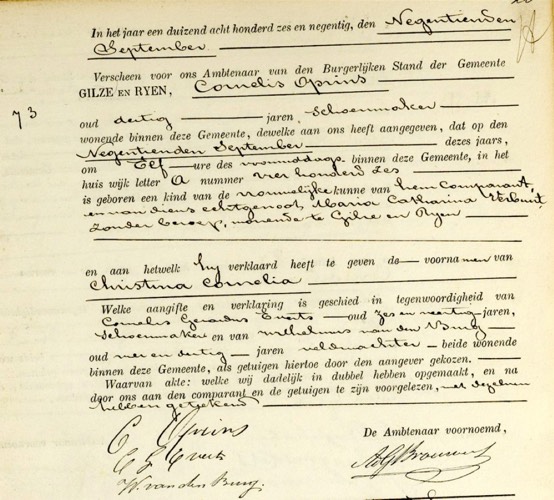 In het jaar een duizend acht honderd zes en negentig, den Negentienden
September
Verscheen voor ons Ambtenaar van den Burgerlijken Stand der Gemeente
GILZE EN RYEN, Cornelis Oprins
73
oud dertig jaren, Schoenmaker
wonende binnen deze Gemeente, dewelke aan ons heeft aangegeven, dat op den
Negentienden September dezes jaars,
om Elf ure des voormiddags binnen deze Gemeente, in het
huis wijk letter A nummer vier honderd zes
is geboren een kind van de vrouwelijke kunne van hem Comparant,
en van diens echtgenoot, Maria Catharina
zonder beroep, wonende te Gilze en Ryen
en aan hetwelk hij verklaard heeft te geven de voornamen van
Christina Cornelia
Welke aangifte en verklaring is geschied in tegenwoordigheid van
Cornelis Gerardus Everts oud zes en veertig jaren,
Schoenmaker en van Wilhelmus van den Burg
oud vier en dertig jaren veldwachter beide wonende
binnen deze Gemeente, als getuigen hiertoe door den aangever gekozen.
Waarvan akte: welke wij dadelijk in dubbel hebben opgemaakt, en na
door ons aan den comparant en de getuigen te zijn voorgelezen, met dezelven
hebben getekend
De Ambtenaar voornoemd,
C Oprins
C G Everts
W. van den Burg.